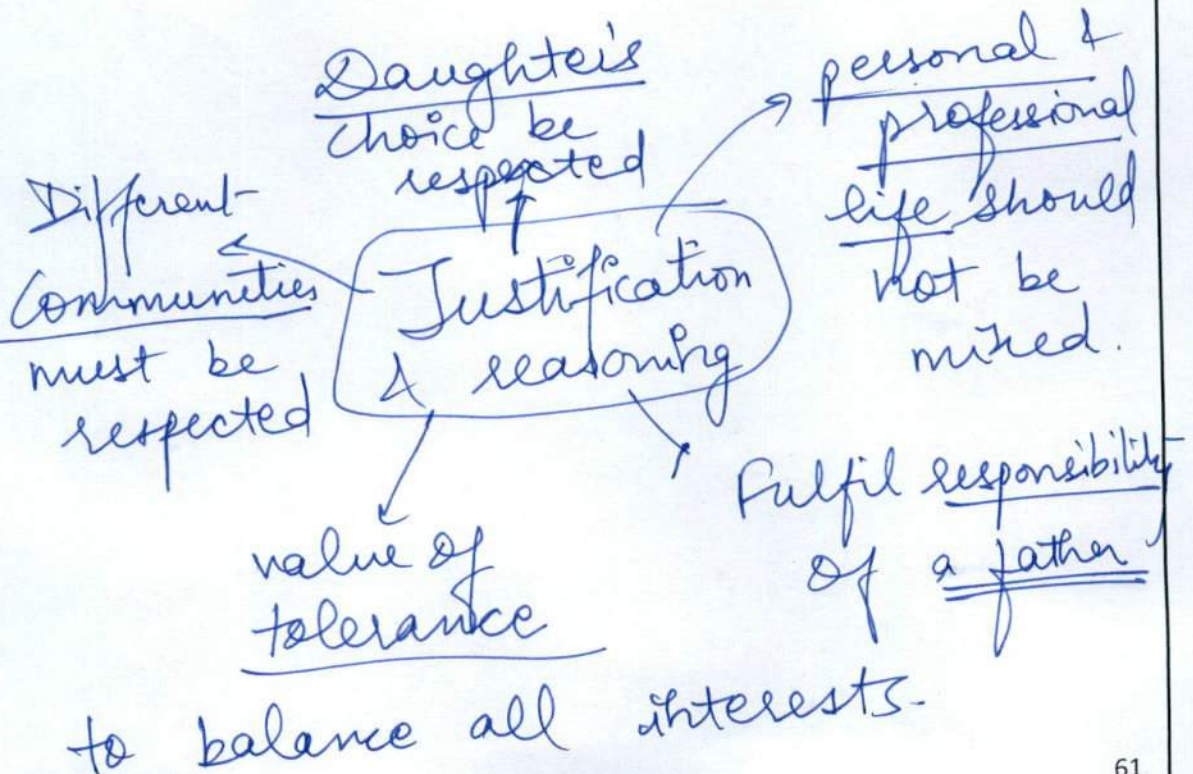 Daughter's
choice be
respected
personal &
professional
life should
not be
mixed.
Different
Communities
must be
respected
Justification
& reasoning
value of
tolerance
Fulfil responsibility
of a father
to balance all interests.
61